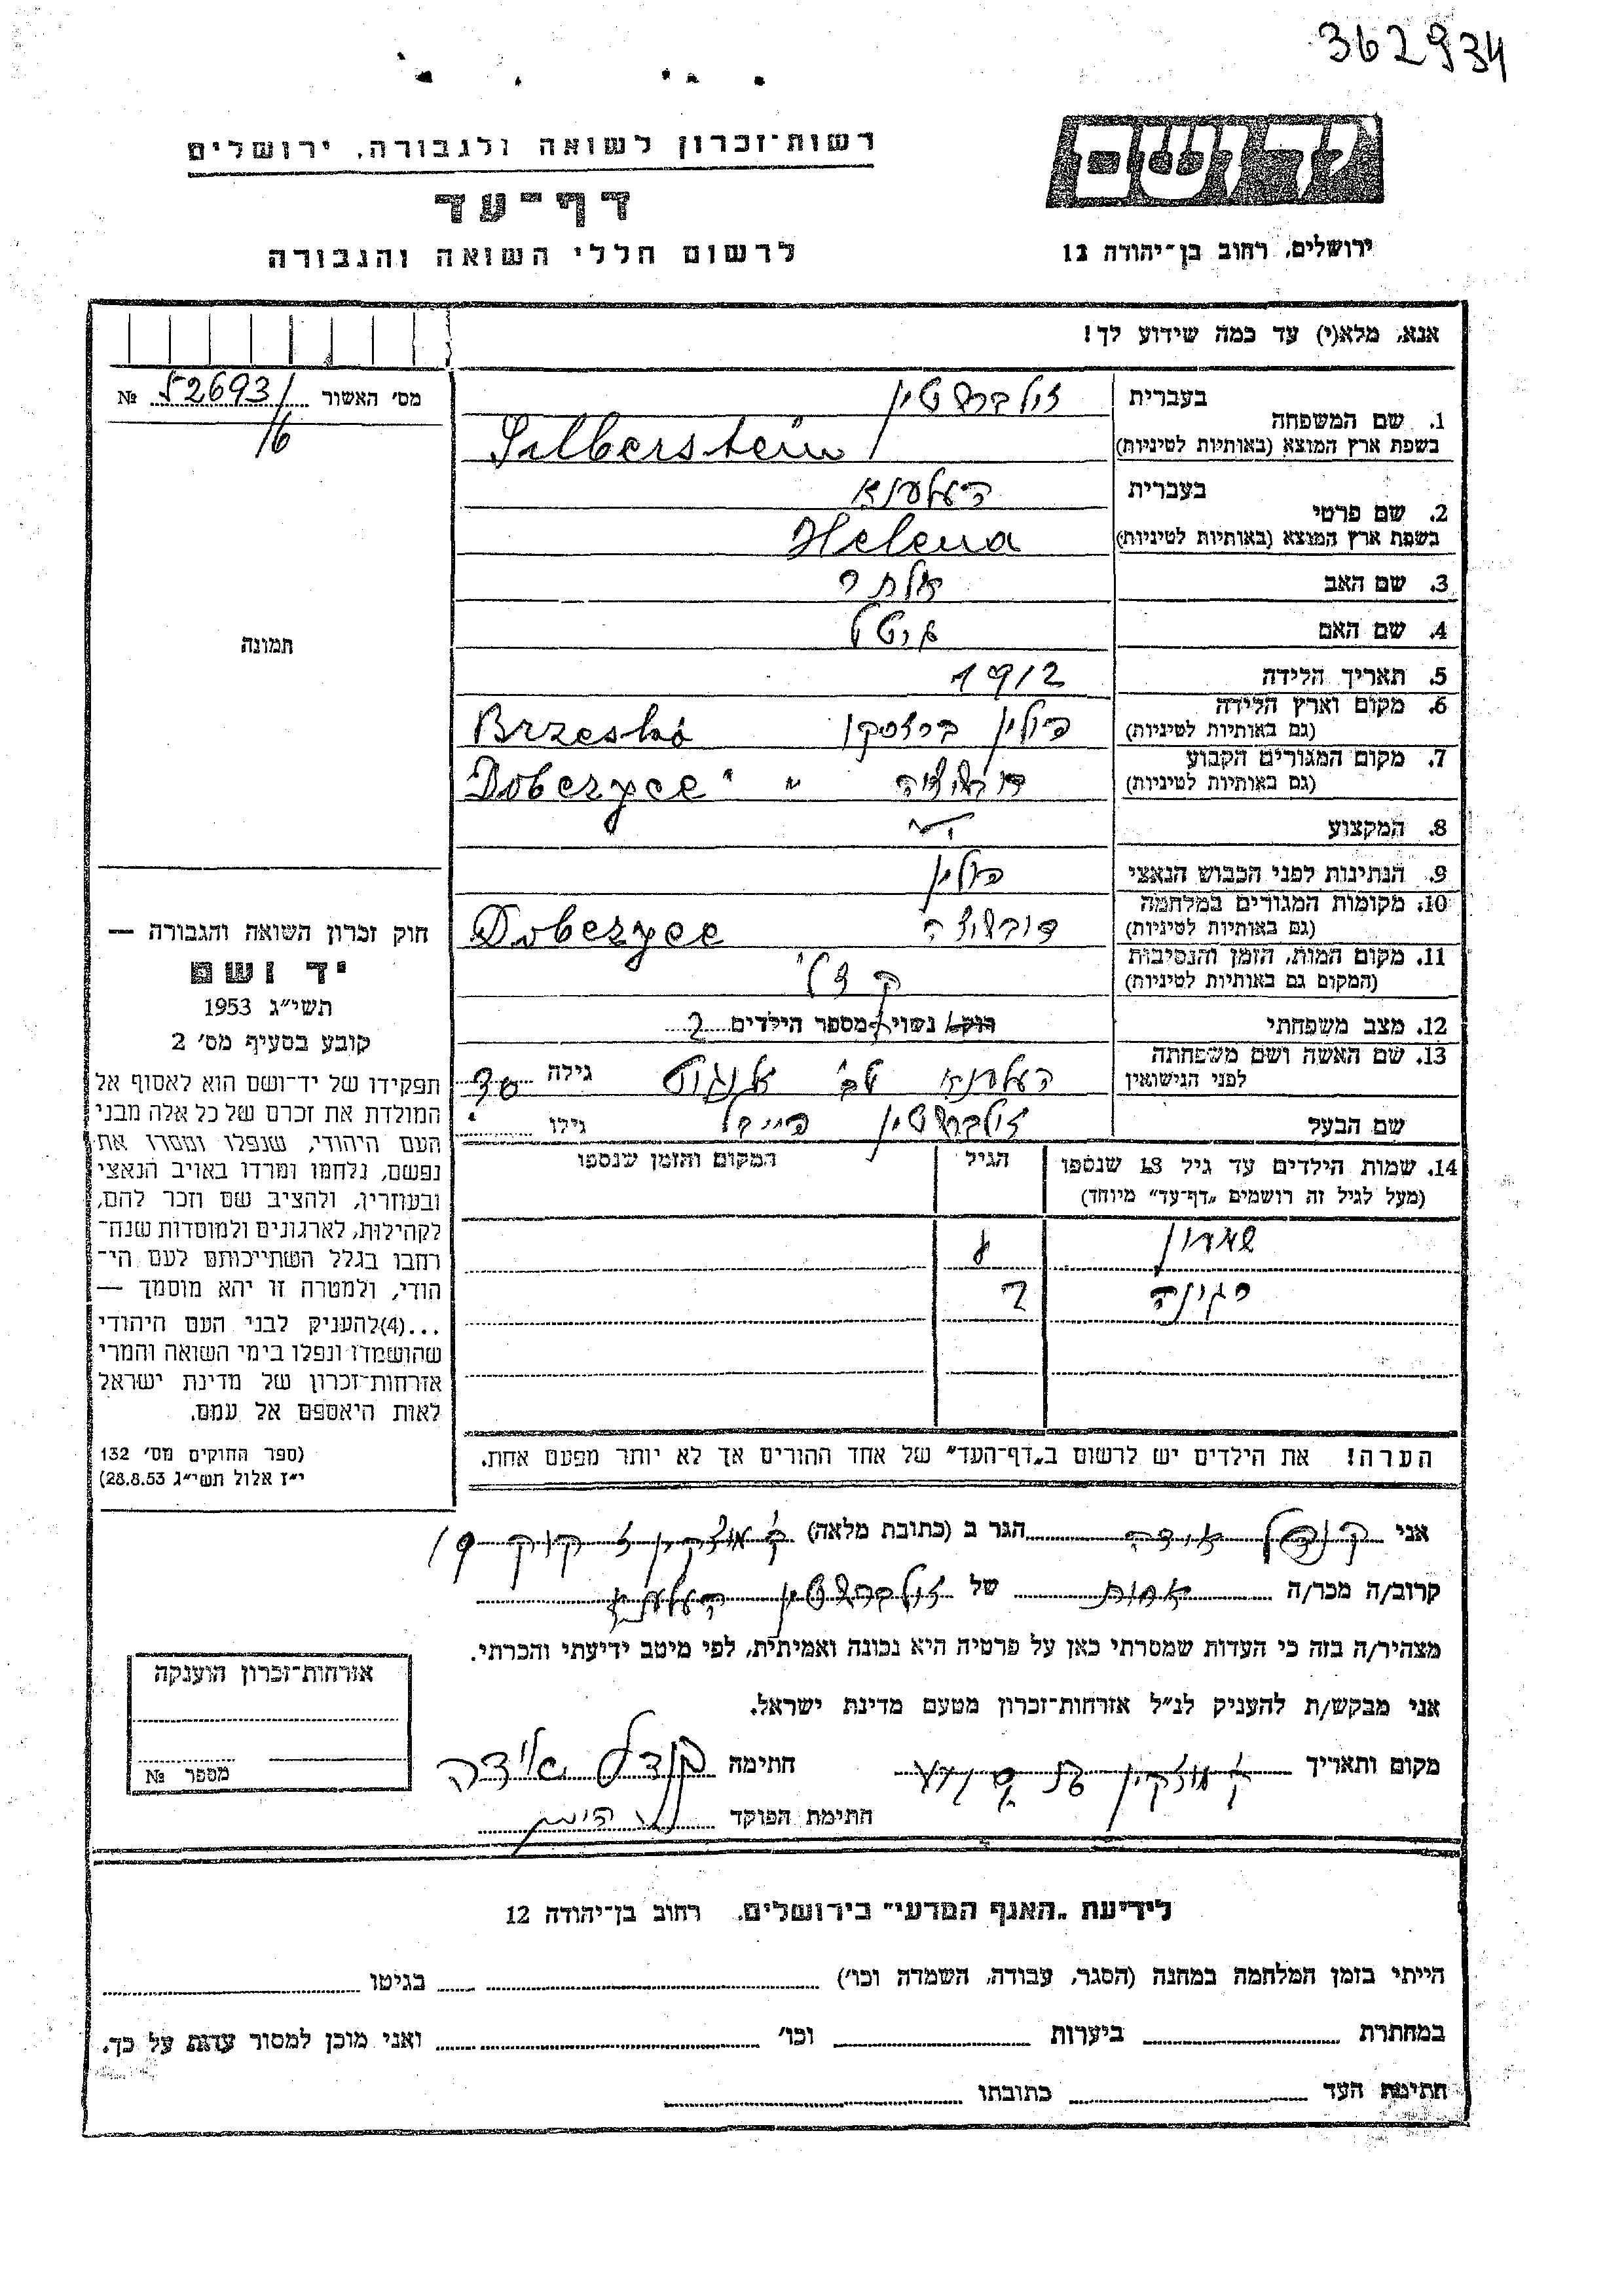 362934
רשות־זכרון לשואה ולגבורה, ירושלים
דף־עד
לרשום חללי השואה והגבורה
יד ושם
ירושלים, רחוב בן־יהודה 12
אנא, מלא(י) עד כמה שידוע לך!
מס' האשור № 526931
16
תמונה
1. שם המשפחה
בעברית זילברשטיין
בשפת ארץ המוצא (באותיות לטיניות) Silberstein
2. שם פרטי
בעברית העלענא
בשפת ארץ המוצא (באותיות לטיניות) Helena
3. שם האב
4. שם האם
5. תאריך הלידה 1912
6. מקום וארץ הלידה פולין Brzesko
(גם באותיות לטיניות)
7. מקום המגורים הקבוע " " Doberzec
(גם באותיות לטיניות)
8. המקצוע
9. הנתינות לפני הכבוש הנאצי פולין
10. מקומות המגורים במלחמה Doberzec
(גם באותיות לטיניות)
11. מקום המות, הזמן והנסיבות
(המקום גם באותיות לטיניות)
12. מצב משפחתי רוק/ נשוי/ מספר הילדים 2
13. שם האשה ושם משפחתה העלענא גילה
לפני הנישואין
שם הבעל זילברשטיין גילו
14. שמות הילדים עד גיל 18 שנספו הגיל המקום והזמן שנספו
(מעל לגיל זה רושמים „דף־עד" מיוחד)
שמעון
רגינה 2
הערה! את הילדים יש לרשום ב„דף־העד" של אחד ההורים אך לא יותר מפעם אחת.
חוק זכרון השואה והגבורה —
יד ושם
תשי"ג 1953
קובע בסעיף מס' 2
תפקידו של יד־ושם הוא לאסוף אל
המולדת את זכרם של כל אלה מבני
העם היהודי, שנפלו ומסרו את
נפשם, נלחמו ומרדו באויב הנאצי
ובעוזריו, ולהציב שם וזכר להם,
לקהילות, לארגונים ולמוסדות שנח־
רבו בגלל השתייכותם לעם הי־
הודי, ולמטרה זו יהא מוסמך —
...(4)להעניק לבני העם היהודי
שהושמדו ונפלו בימי השואה והמרי
אזרחות־זכרון של מדינת ישראל
לאות היאספם אל עמם.
(ספר החוקים מס' 132
י"ז אלול תשי"ג 28.8.53)
אני קנדל אידה הגר ב (כתובת מלאה) ק. מוצקין
קרוב/ה מכר/ה אחות של זילברשטיין העלענא
מצהיר/ה בזה כי העדות שמסרתי כאן על פרטיה היא נכונה ואמיתית, לפי מיטב ידיעתי והכרתי.
אני מבקש/ת להעניק לנ"ל אזרחות־זכרון מטעם מדינת ישראל.
מקום ותאריך ק. מוצקין חתימה קנדל אידה
חתימת הפוקד
אזרחות־זכרון הוענקה
מספר №
לידיעת „האגף המדעי" בירושלים, רחוב בן־יהודה 12
הייתי בזמן המלחמה במחנה (הסגר, עבודה, השמדה וכו') בגיטו
במחתרת ביערות וכו' ואני מוכן למסור עדות על כך.
חתימת העד כתובתו